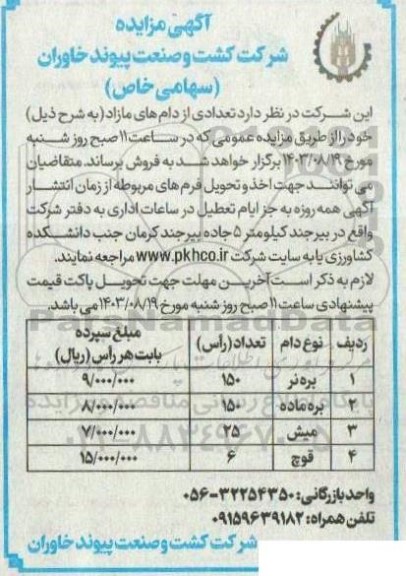 آگهی مزایده
شرکت کشت و صنعت پیوند خاوران
(سهامی خاص)
این شرکت در نظر دارد تعدادی از دام های مازاد (به شرح ذیل)
خود را از طریق مزایده عمومی که در ساعت ۱۱ صبح روز شنبه
مورخ ۱۴۰۳/۰۸/۱۹ برگزار خواهد شد به فروش برساند. متقاضیان
می توانند جهت اخذ و تحویل فرم های مربوطه از زمان انتشار
آگهی همه روزه به جز ایام تعطیل در ساعات اداری به دفتر شرکت
واقع در بیرجند کیلومتر ۵ جاده بیرجند کرمان جنب دانشکده
کشاورزی یا به سایت شرکت www.pkhco.ir مراجعه نمایند.
لازم به ذکر است آخرین مهلت جهت تحویل پاکت قیمت
پیشنهادی ساعت ۱۱ صبح روز شنبه مورخ ۱۴۰۳/۰۸/۱۹ می باشد.
ردیف نوع دام تعداد (راس) مبلغ سپرده بابت هر راس (ریال)
۱ بره نر ۱۵۰ ۹/۰۰۰/۰۰۰
۲ بره ماده ۱۵۰ ۸/۰۰۰/۰۰۰
۳ میش ۲۵ ۷/۰۰۰/۰۰۰
۴ قوچ ۶ ۱۵/۰۰۰/۰۰۰
واحد بازرگانی: ۳۲۲۵۴۳۵۰-۰۵۶
تلفن همراه: ۰۹۱۵۹۶۳۹۱۸۲
شرکت کشت و صنعت پیوند خاوران